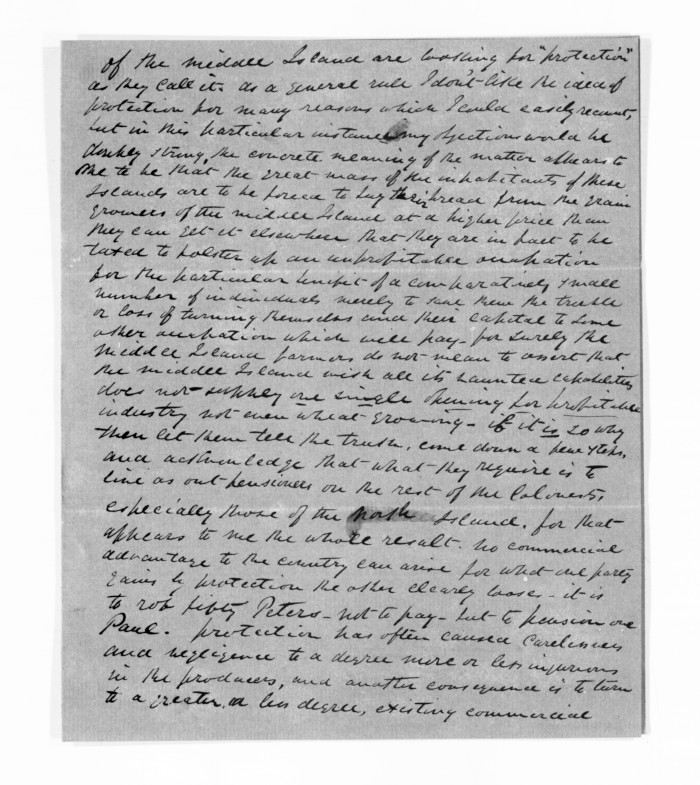 of the middle Island are looking for "protection"
as they call it. as a general rule I don't like the idea of
protection for many reasons which I could easily recount,
but in this particular instance my objections would be
doubly strong, the concrete meaning of the matter appears to
me to be that the great mass of the inhabitants of these
Islands are to be forced to buy their bread from the grain
growers of the middle Island at a higher price than
they can get it elsewhere that they are in fact to be
taxed to bolster up an unprofitable occupation
for the particular benefit of a comparatively small
number of individuals merely to save them the trouble
or loss of turning themselves and their capital to some
other occupation which will pay - for surely the
middle Island farmers do not mean to assert that
the middle Island with all its vaunted capabilities
does not supply one single opening for profitable
industry not even wheat growing - if it is so why
then let them tell the truth, come down a few steps,
and acknowledge that what they require is to
live as out pensioners on the rest of the Colonists,
especially those of the north Island. for that
appears to me the whole result. no commercial
advantage to the country can arise for what one party
gains by protection the other clearly looses - it is
to rob fifty Peters - not to pay - but to pension one
Paul. protection has often caused carelessness
and negligence to a degree more or less injurious
in the producers, and another consequence is to turn
to a greater or less degree, existing commercial